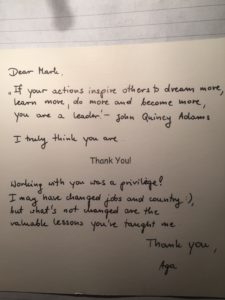 Dear Mark,
„If your actions inspire others to dream more,
learn more, do more and become more,
you are a leader" – John Quincy Adams
I truly think you are
Thank You!
Working with you was a privilege!
I may have changed jobs and country :),
but what's not changed are the
valuable lessons you've taught me
Thank you,
Aga